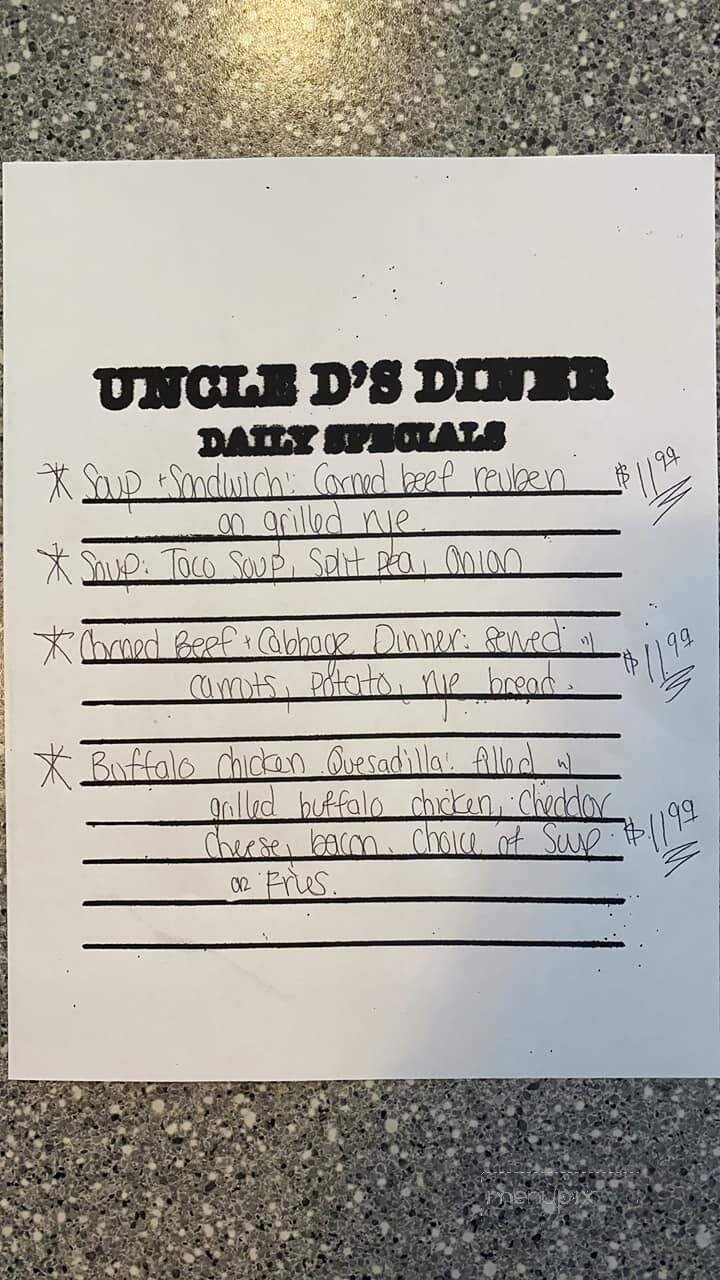 UNCLE D'S DINER
DAILY SPECIALS
* Soup + Sandwich: Corned beef reuben $11.99
on grilled rye.
* Soup: Taco Soup, Split Pea, Onion
* Corned Beef + Cabbage Dinner: served w/ $11.99
carrots, potato, rye bread.
* Buffalo chicken Quesadilla: filled w/
grilled buffalo chicken, cheddar
cheese, bacon. Choice of Soup $11.99
or Fries.
menupix